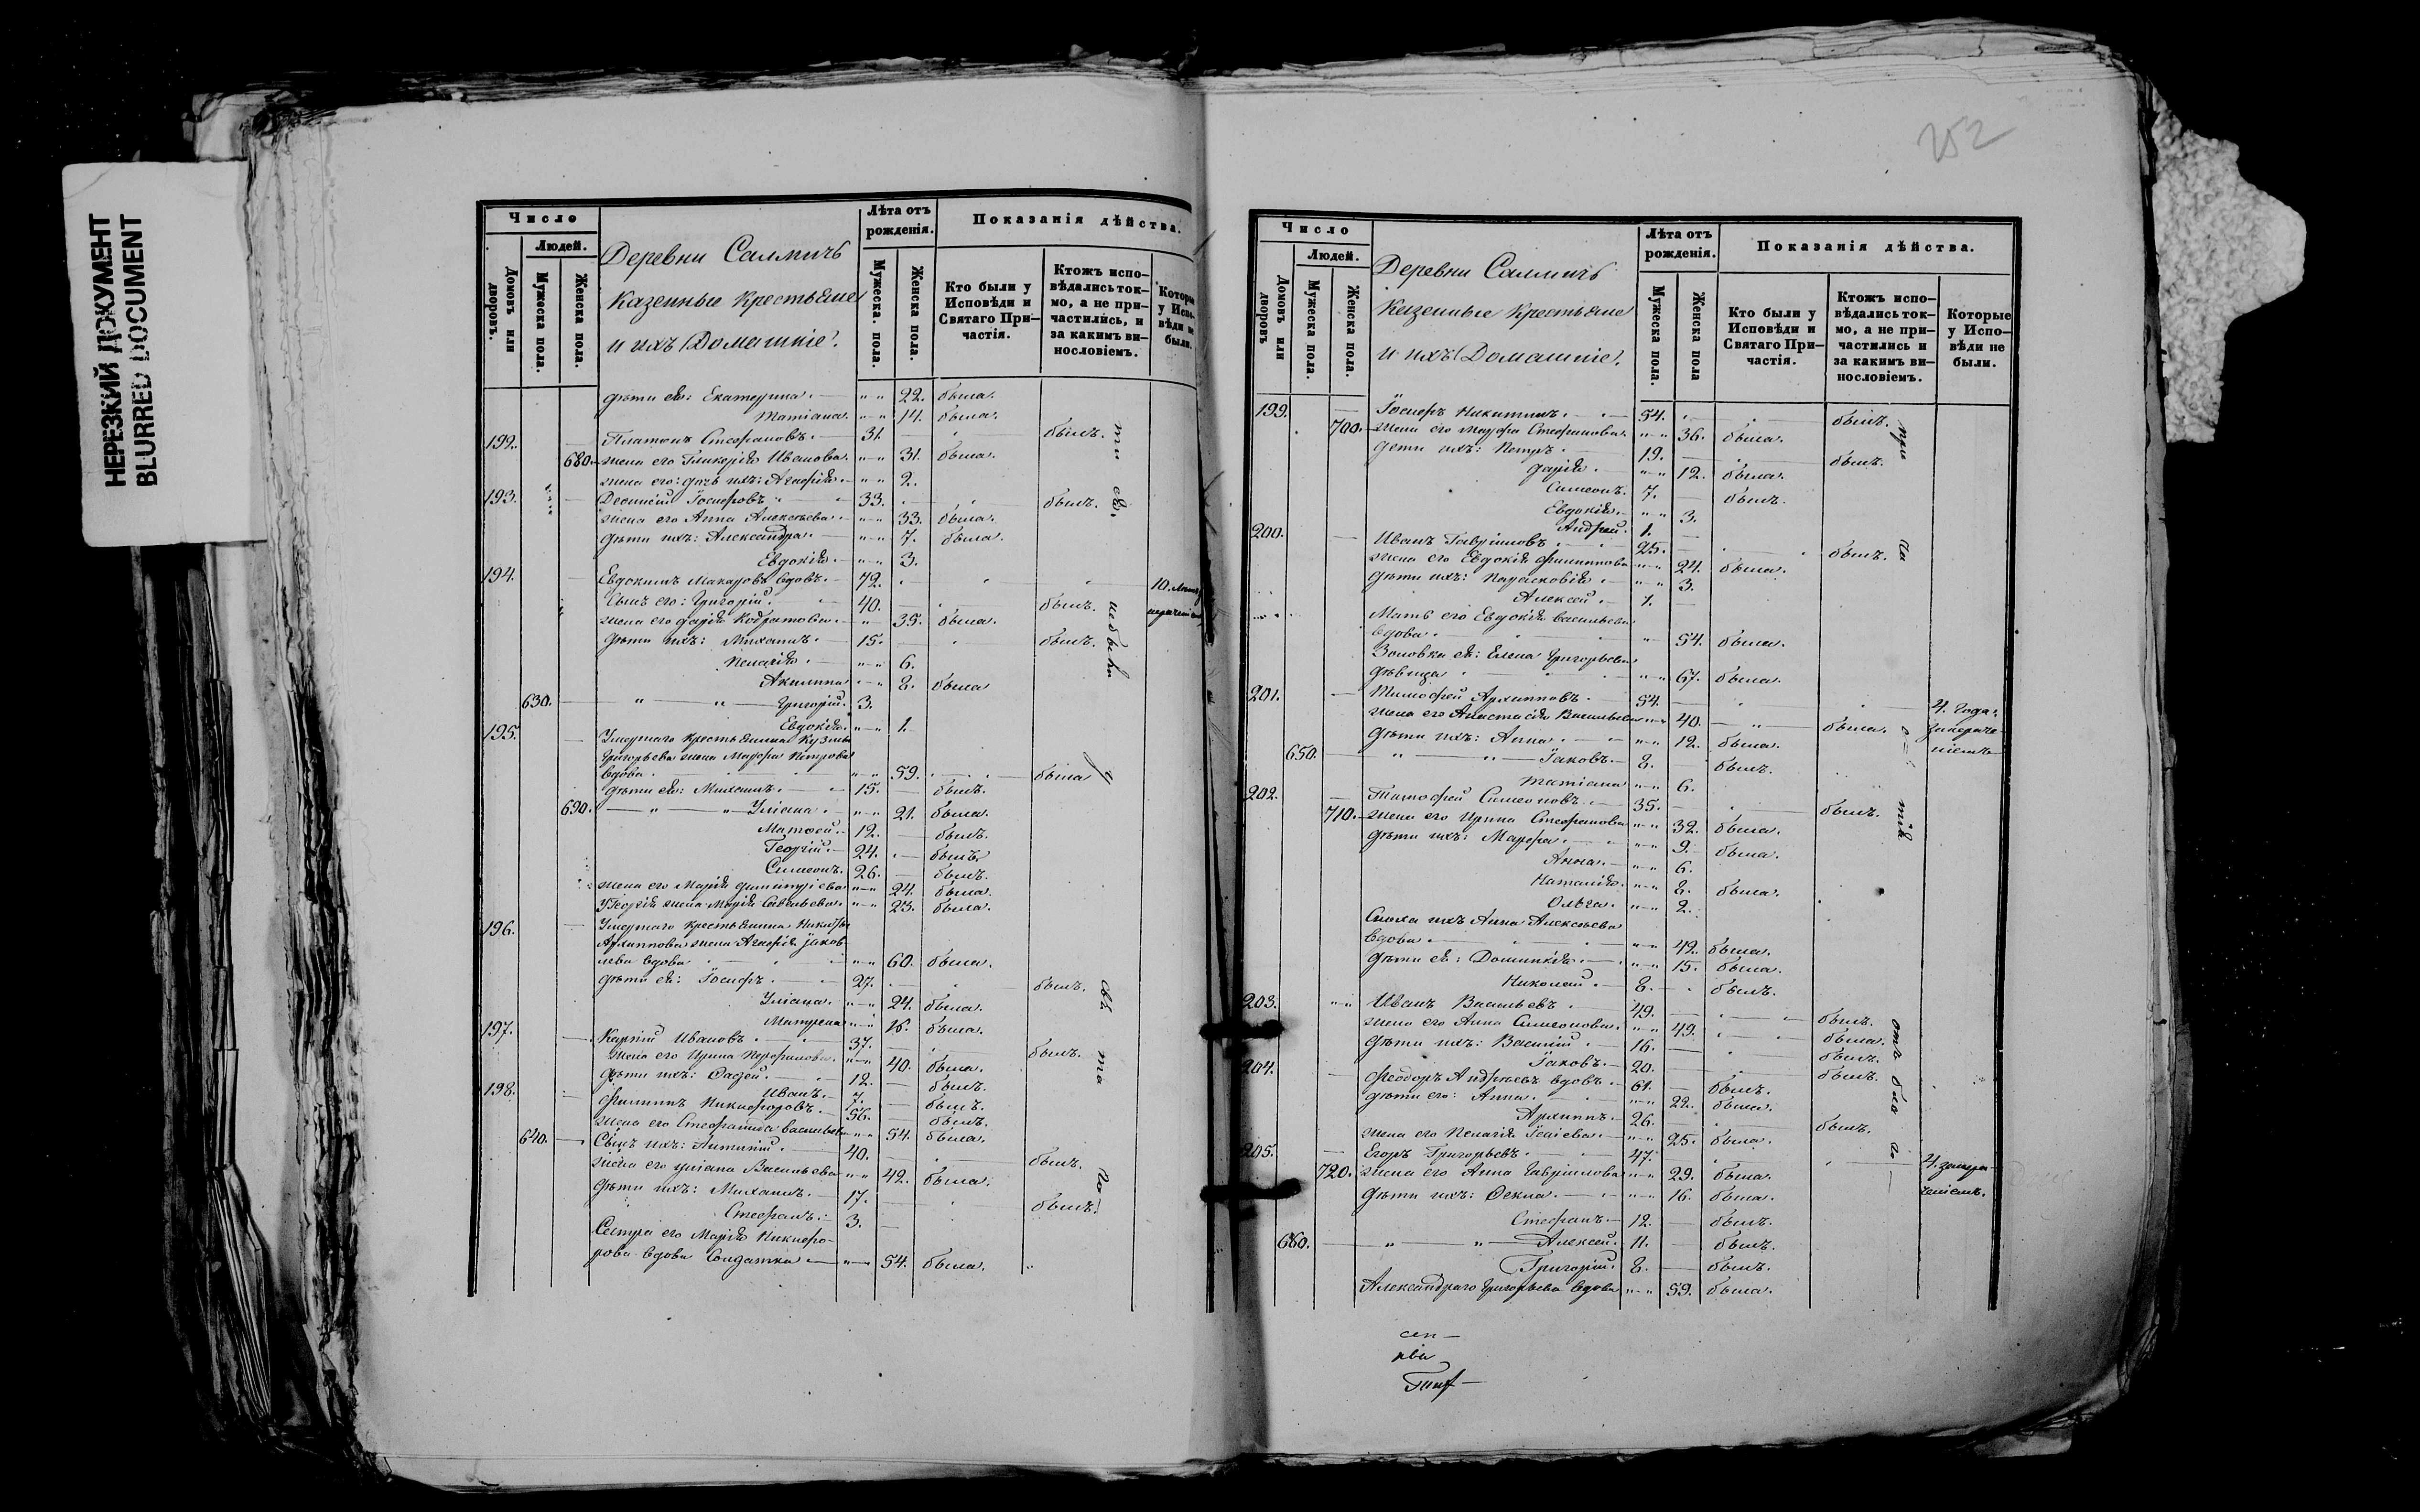 НЕРЕЗКИЙ ДОКУМЕНТ
BLURRED DOCUMENT
Число
Людей.
Домовъ или дворовъ.
Мужеска пола.
Женска пола.
Деревни Салмичъ
казенные крестьяне
и ихъ Домашніе.
Лѣта отъ рожденія.
Мужеска. пола.
Женска пола.
Показанія дѣйства.
Кто были у Исповѣди и Святаго При-частія.
Ктожъ испо-вѣдались ток-мо, а не при-частились, и за какимъ ви-нословіемъ.
Которые у Испо-вѣди не были.
дѣти ея: Екатерина. 22. была.
Татіана. 14. была.
192. Платонъ Стефановъ. 31. былъ.
680. жена его Гликерія Иванова. 31. была.
дочь ихъ: Агафія. 2.
193. Деонисій Іосифовъ 33. былъ.
жена его Анна Алексѣева. 33. была.
дѣти ихъ: Александра. 7. была.
Евдокія. 3.
194. Евдокимъ Макаровъ вдовъ. 72. 10. лѣтъ
Сынъ его: Григорій. 40. былъ.
жена его Дарія Кодратова. 35. была.
дѣти ихъ: Михаилъ. 15. былъ.
Пелагія. 6.
Акилина 8. была
630. Григорій. 3.
Евдокія. 1.
195. Умершаго крестьянина Кузьмы
Григорьева жена Марфа Петрова
вдова. 59. была
дѣти ея: Михаилъ. 15. былъ.
690. Уліана. 21. была.
Матѳей. 12. былъ.
Георгій. 24. былъ.
Симеонъ. 26. былъ.
жена его Марія Димитріева 24. была.
У Георгія жена Марія Савельева. 23. была.
196. Умершаго крестьянина Никиты
Архиппова жена Агафія Іаков
лева вдова 60. была.
дѣти ея: Іосифъ. 27. былъ.
Уліана. 24. была.
Матрена 16. была.
197. Карпій Ивановъ. 37. былъ.
жена его Ирина Порфирова. 40. была.
дѣти ихъ: Фадей. 12. былъ.
Иванъ. 7. былъ.
198. Филиппъ Никифоровъ. 56. былъ.
жена его Стефанида Васильева 54. была.
640. Сынъ ихъ: Антипій. 40. былъ.
жена его Уліана Васильева 42. была.
дѣти ихъ: Михаилъ. 17. былъ.
Стефанъ. 3.
Сестра его Марія Никифо-
рова вдова Солдатка 54. была.
252
Число
Людей.
Домовъ или дворовъ
Мужеска пола.
Женска пола.
Деревни Салмичъ
казенные крестьяне
и ихъ Домашніе.
Лѣта отъ рожденія.
Мужеска пола.
Женска пола
Показанія дѣйства.
Кто были у Исповѣди и Святаго При-частія.
Ктожъ испо-вѣдались ток-мо, а не при-частились и за какимъ ви-нословіемъ.
Которые у Испо-вѣди не были.
199. Іосифъ Никитинъ. 54. былъ.
700. жена его Марфа Стефанова. 36. была.
дѣти ихъ: Петръ. 19. былъ.
Дарія. 12. была.
Симеонъ. 7. былъ.
Евдокія. 3.
Андрей. 1.
200. Иванъ Гавріиловъ 25. былъ.
жена его Евдокія Филиппова 24. была.
дѣти ихъ: Парасковія 3.
Алексей. 1.
Мать его Евдокія Васильева
вдова. 54. была.
Золовка ея: Елена Григорьева
дѣвица 67. была.
201. Тимофей Архипповъ. 54. 4. года
жена его Анастасія Васильева 40. была.
дѣти ихъ: Анна. 12. была.
650. Іаковъ. 8. былъ.
Татіана 6.
202. Тимофей Симеоновъ. 35. былъ.
710. жена его Ирина Стефанова 32. была.
дѣти ихъ: Марфа. 9. была.
Анна. 6.
Наталія. 8. была.
Ольга. 2.
Сноха ихъ Анна Алексѣева
вдова 42. была.
дѣти ея: Домникія. 15. была.
Николай. 8. былъ.
203. Иванъ Васильевъ. 49. былъ.
жена его Анна Симеонова. 49. была.
дѣти ихъ: Василій. 16. былъ.
Іаковъ. 20. былъ.
204. Феодоръ Андрѣевъ вдовъ. 61. былъ.
дѣти его: Анна. 22. была.
Архиппъ. 26. былъ.
жена его Пелагія Ісаіева. 25. была.
205. Егоръ Григорьевъ. 47.
720. жена его Анна Гавріилова 29. была.
дѣти ихъ: Фекла. 16. была.
Стефанъ. 12. былъ.
660. Алексей. 11. былъ.
Григорій. 8. былъ.
Александра Григорьева вдова 59. была.